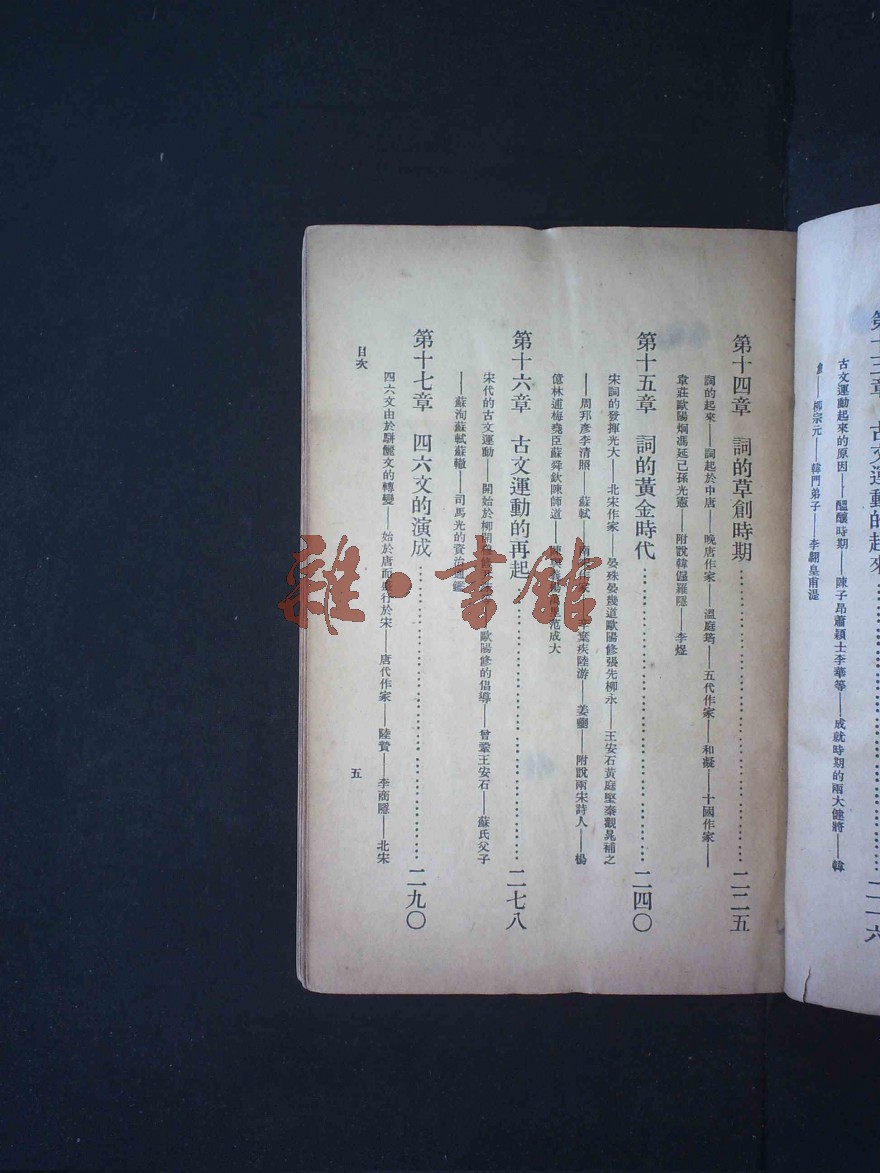 古文運動的起來
二一六
古文運動起來的原因——醞釀時期——陳子昂蕭穎士李華等——成就時期的兩大健將——韓
愈——柳宗元——韓門弟子——李翺皇甫湜
第十四章 詞的草創時期……二二五
詞的起來——詞起於中唐——晚唐作家——溫庭筠——五代作家——和凝——十國作家——
韋莊歐陽炯馮延己孫光憲——附說韓偓羅隱——李煜
第十五章 詞的黃金時代……二四〇
宋詞的發揮光大——北宋作家——晏殊晏幾道歐陽修張先柳永——王安石黃庭堅秦觀晁補之
——周邦彥李清照——蘇軾——南宋作家——辛棄疾陸游——姜夔——附說兩宋詩人——楊
億林逋梅堯臣蘇舜欽陳師道——楊萬里范成大
第十六章 古文運動的再起……二七八
宋代的古文運動——開始於柳開 歐陽修的倡導——曾鞏王安石——蘇氏父子
——蘇洵蘇軾蘇轍——司馬光的資治通鑑
第十七章 四六文的演成……二九〇
四六文由於駢儷文的轉變——始於唐而盛行於宋——唐代作家——陸贄——李商隱——北宋
目次
五
雜·書館